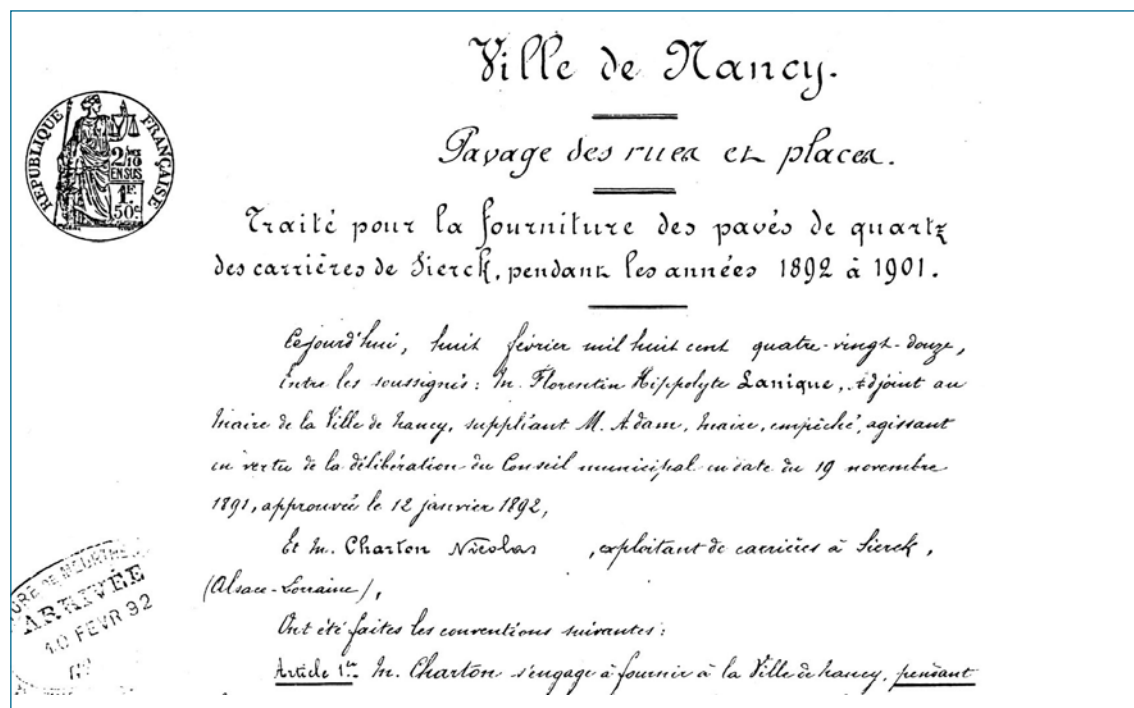 Ville de Nancy.
Pavage des rues et places.
RÉPUBLIQUE FRANÇAISE
2/10 EN SUS
1F. 50c
Traité pour la fourniture des pavés de quartz
des carrières de Sierck, pendant les années 1892 à 1901.
Cejourd'hui, huit février mil huit cent quatre-vingt-douze,
Entre les soussignés: M. Florentin Hippolyte Lanique, Adjoint au
Maire de la Ville de Nancy, suppléant M. Adam, Maire, empêché, agissant
en vertu de la délibération du Conseil municipal en date du 19 novembre
1891, approuvée le 12 janvier 1892,
Et M. Charton Nicolas , exploitant de carrières à Sierck,
(Alsace-Lorraine),
ARRIVÉE
10 FEVR 92
Ont été faites les conventions suivantes:
Article 1er. M. Charton s'engage à fournir à la Ville de Nancy, pendant